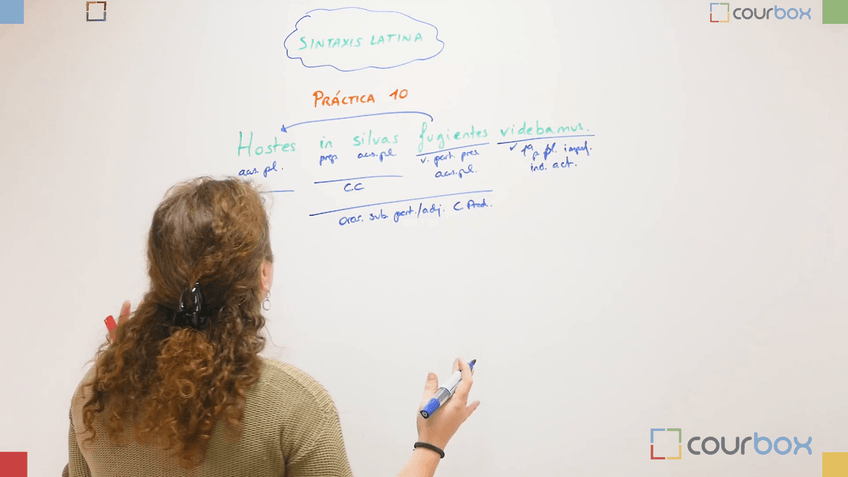 courbox
SINTAXIS LATINA
PRÁCTICA 10
Hostes in silvas fugientes videbamus.
acus. pl. prep. acus. pl. v. part. pres. acus. pl. v 1ª p. pl. impf. ind. act.
C.C
orac. sub. part./adj. C Pred.
courbox